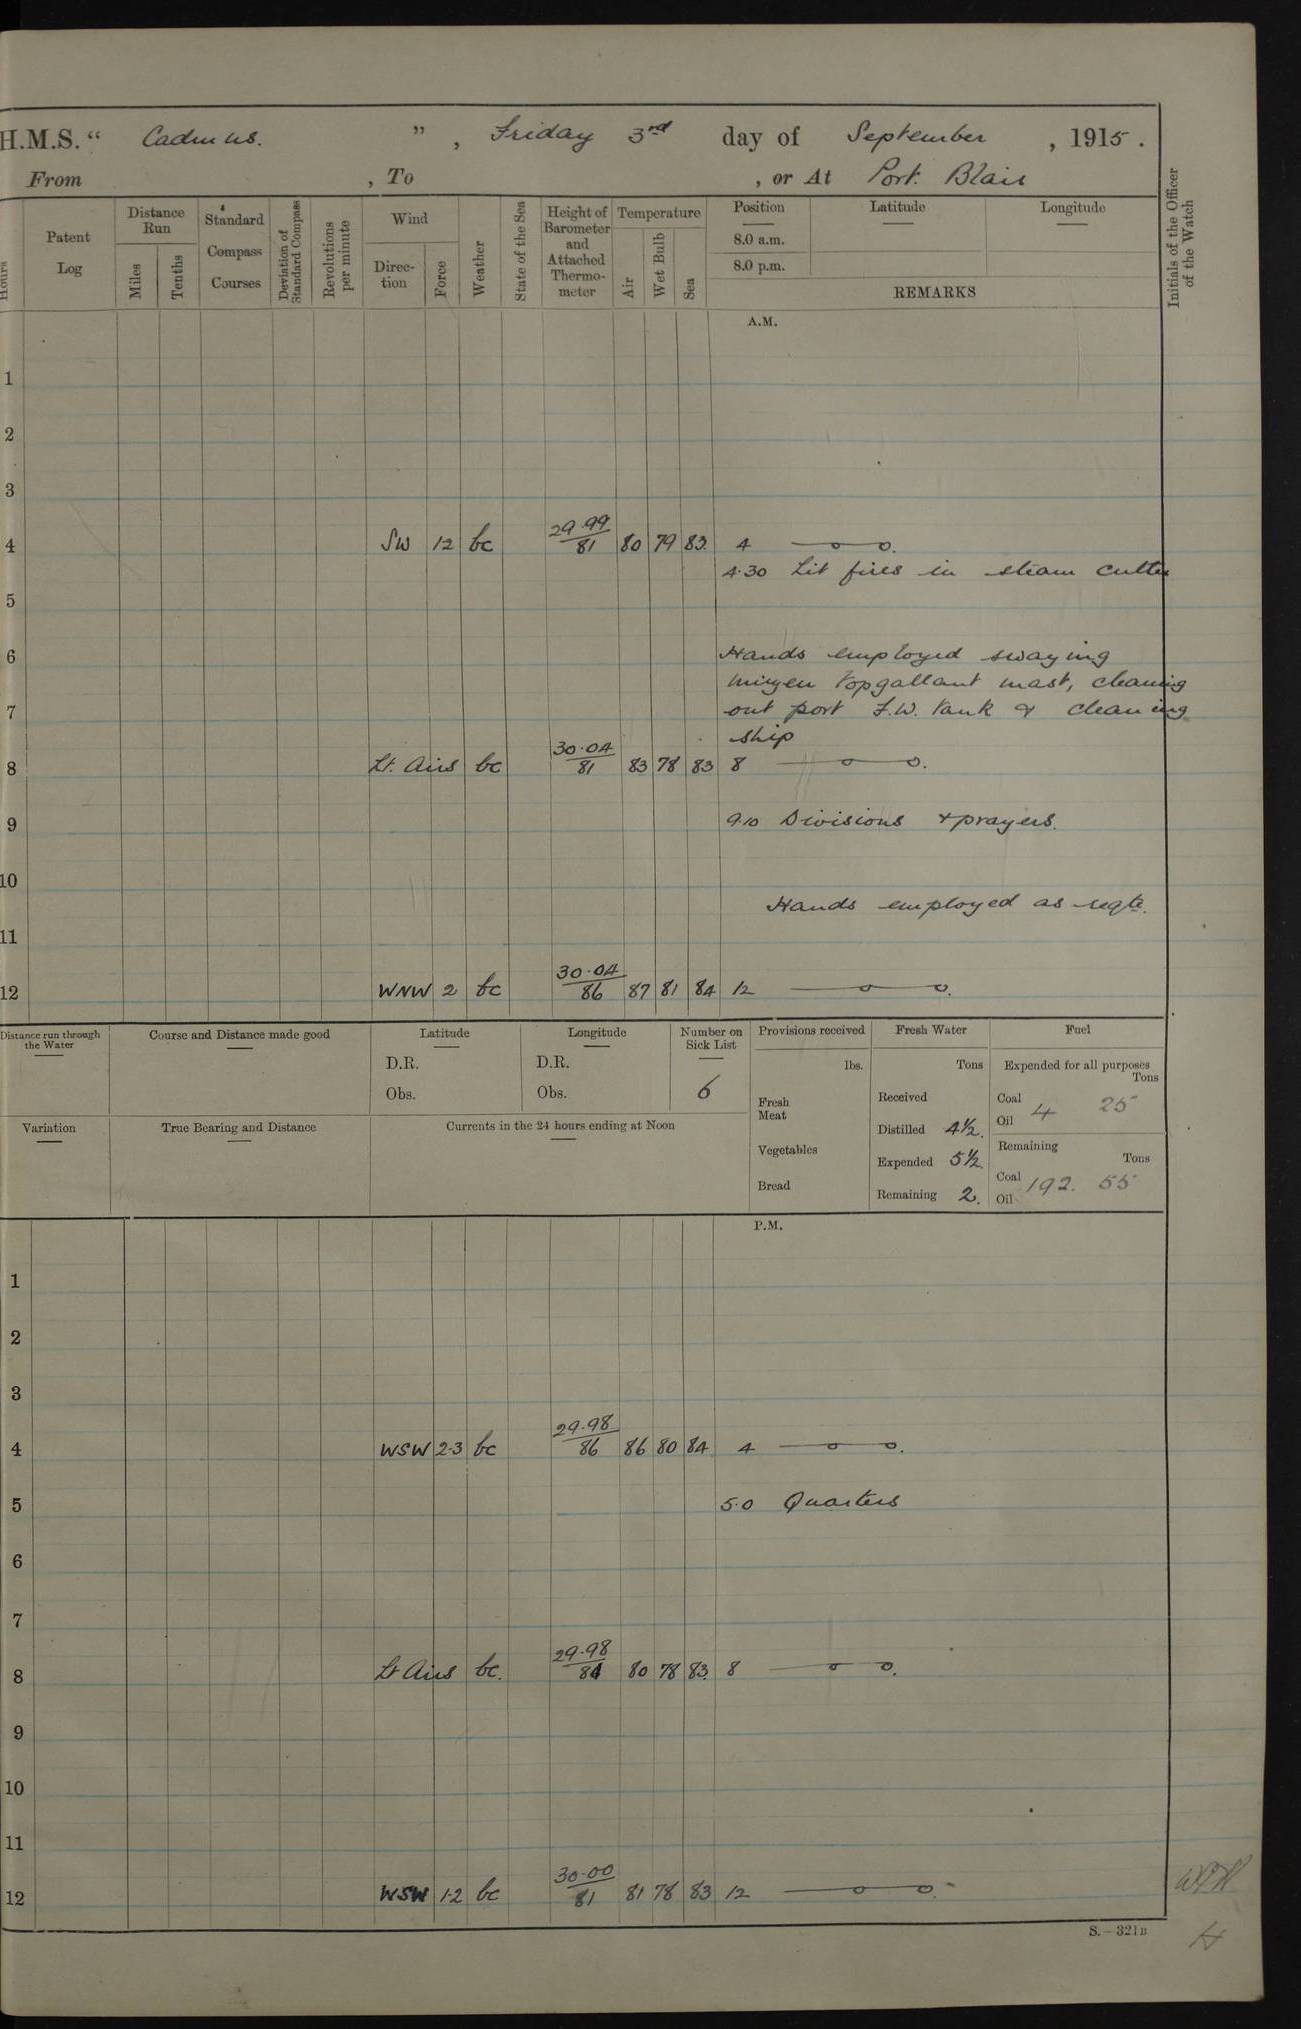 H.M.S. " Cadmus. " , Friday 3rd day of September , 1915 .
From , To , or At Port Blair
Hours
Patent Log
Distance Run
Miles
Tenths
Standard Compass Courses
Deviation of Standard Compass
Revolutions per minute
Wind
Direction
Force
Weather
State of the Sea
Height of Barometer and Attached Thermometer
Temperature
Air
Wet Bulb
Sea
Position
8.0 a.m.
8.0 p.m.
Latitude
Longitude
REMARKS
Initials of the Officer of the Watch
A.M.
1
2
3
4 SW 1·2 bc 29.99/81 80 79 83. 4
4.30 Lit fires in steam cutter
5
6 Hands employed swaying
mizen topgallant mast, cleaning
7 out port F.W. tank & cleaning
ship
8 Lt. Airs bc 30.04/81 83 78 83 8
9 9.10 Divisions & prayers.
10
Hands employed as reqte.
11
12 WNW 2 bc 30.04/86 87 81 84 12
Distance run through the Water
Course and Distance made good
Latitude
D.R.
Obs.
Longitude
D.R.
Obs.
Number on Sick List
6
Provisions received
lbs.
Fresh Meat
Vegetables
Bread
Fresh Water
Tons
Received
Distilled 4½.
Expended 5½.
Remaining 2.
Fuel
Expended for all purposes
Tons
Coal
Oil
4 25
Remaining
Tons
Coal
Oil
192. 55
Variation
True Bearing and Distance
Currents in the 24 hours ending at Noon
P.M.
1
2
3
4 WSW 2·3 bc 29.98/86 86 80 84 4
5 5.0 Quarters
6
7
8 Lt Airs bc. 29.98/84 80 78 83. 8
9
10
11
12 WSW 1·2 bc 30.00/81 81 78 83 12
S.—321B